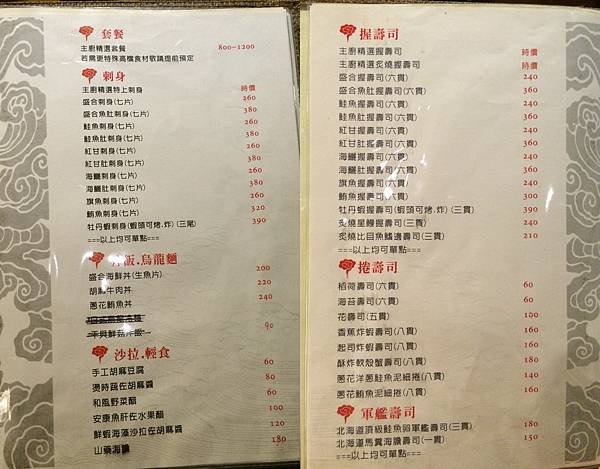 套餐
主廚精選套餐 800-1200
若需更特殊高檔食材敬請提前預定
刺身
主廚精選特上刺身 時價
盛合刺身(七片) 260
盛合魚肚刺身(七片) 380
鮭魚刺身(七片) 260
鮭魚肚刺身(七片) 380
紅甘刺身(七片) 260
紅甘肚刺身(七片) 380
海鱺刺身(七片) 260
海鱺肚刺身(七片) 380
旗魚刺身(七片) 260
鮪魚刺身(七片) 320
牡丹蝦刺身(蝦頭可烤.炸) (三尾) 390
===以上均可單點===
丼飯.烏龍麵
盛合海鮮丼(生魚片) 200
胡麻牛肉丼 220
蔥花鮪魚丼 240
90
沙拉.輕食
手工胡麻豆腐 60
燙時蔬佐胡麻醬 80
和風野菜醋 60
安康魚肝佐水果醋 100
鮮蝦海藻沙拉佐胡麻醬 120
山藥海膽 180
握壽司
主廚精選握壽司 時價
主廚精選炙燒握壽司 時價
盛合握壽司(六貫) 240
盛合魚肚握壽司(六貫) 360
鮭魚握壽司(六貫) 240
鮭魚肚握壽司(六貫) 360
紅甘握壽司(六貫) 240
紅甘肚握壽司(六貫) 360
海鱺握壽司(六貫) 240
海鱺肚握壽司(六貫) 360
旗魚握壽司(六貫) 240
鮪魚握壽司(六貫) 300
牡丹蝦握壽司(蝦頭可烤.炸) (三貫) 390
炙燒星鰻握壽司(三貫) 240
炙燒比目魚鰭邊壽司(三貫) 210
===以上均可單點===
捲壽司
稻荷壽司(六貫) 60
海苔壽司(六貫) 60
花壽司(五貫) 100
香蕉炸蝦壽司(八貫) 160
起司炸蝦壽司(八貫) 160
酥炸軟殼蟹壽司(八貫) 180
蔥花洋蔥鮭魚泥細捲(八貫) 140
蔥花鮪魚泥細捲(八貫) 160
軍艦壽司
北海道頂級鮭魚卵軍艦壽司(三貫) 180
北海道馬糞海膽壽司(一貫) 150